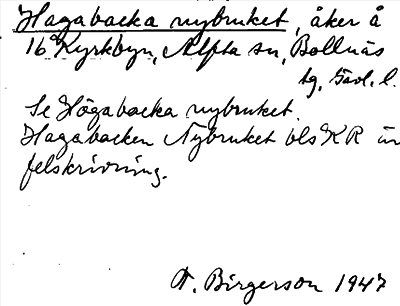 Hagabacka nybruket, åker å
16 Kyrkbyn, Alfta sn, Bollnäs
tg, Gävl. l.
Se Högabacka nybruket.
Hagabacken Nybruket bls KR är
felskrivning.
F. Birgerson 1947